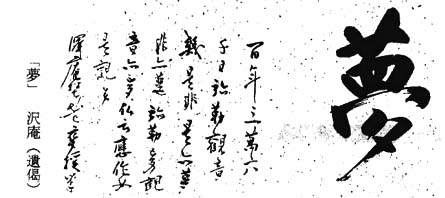 夢
百年三萬六
千日弥勒觀音
幾是非是亦夢
非亦夢弥勒夢觀
音亦夢仏云應作如
是觀矣
澤庵
「夢」 沢庵(遺偈)